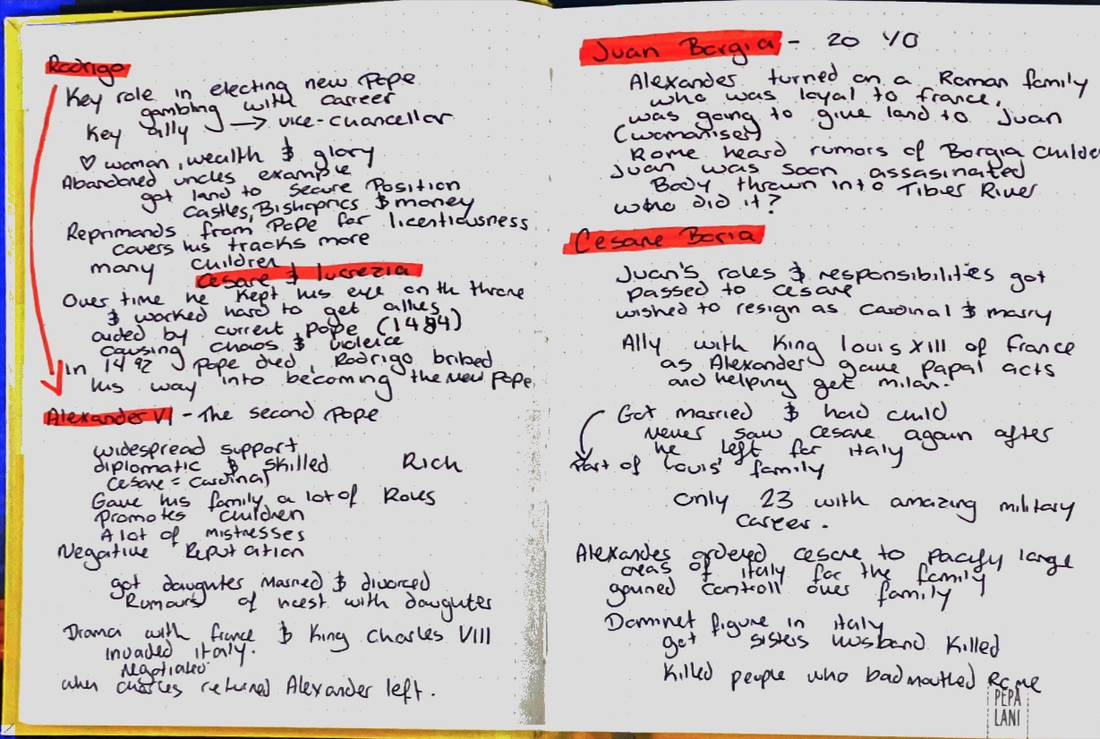 Rodrigo
Key role in electing new Pope
gambling with career
Key ally → vice-chancellor
♡ woman, wealth & glory
Abandoned uncles example
got land to secure Position
Castles, Bishoprics & money
Reprimands from Pope for licentiousness
covers his tracks more
many children
Cesare & lucrezia
Over time he kept his eye on th throne
& worked hard to get allies
aided by current pope (1484)
causing chaos & violence
In 1492 Pope died, Rodrigo bribed
his way into becoming the new Pope
Alexander VI - The second Pope
widespread support
diplomatic & skilled Rich
Cesare = Cardinal
Gave his family a lot of Roles
Promotes children
A lot of mistresses
Negative Reputation
got daughter married & divorced
Rumours of incest with daughter
Drama with france & King Charles VIII
invaded italy.
Negotiated
when charles returned Alexander left.
Juan Borgia - 20 YO
Alexander turned on a Roman family
who was loyal to france,
was going to give land to Juan
(womaniser)
Rome heard rumors of Borgia childe
Juan was soon assasinated
Body thrown into Tiber River
who did it?
Cesare Boria
Juan's roles & responsibilities got
passed to cesare
wished to resign as Cardinal & marry
Ally with King louis XIII of France
as Alexander gave Papal acts
and helping get milan.
Got married & had child
Never saw cesare again after
he left for italy
Part of Louis' family
Only 23 with amazing military
career.
Alexander ordered cesare to pacify large
areas of italy for the family
gained controll over family
Dominet figure in italy
got sisters husband killed
Killed people who badmouthed Rome
PEPA
LANI